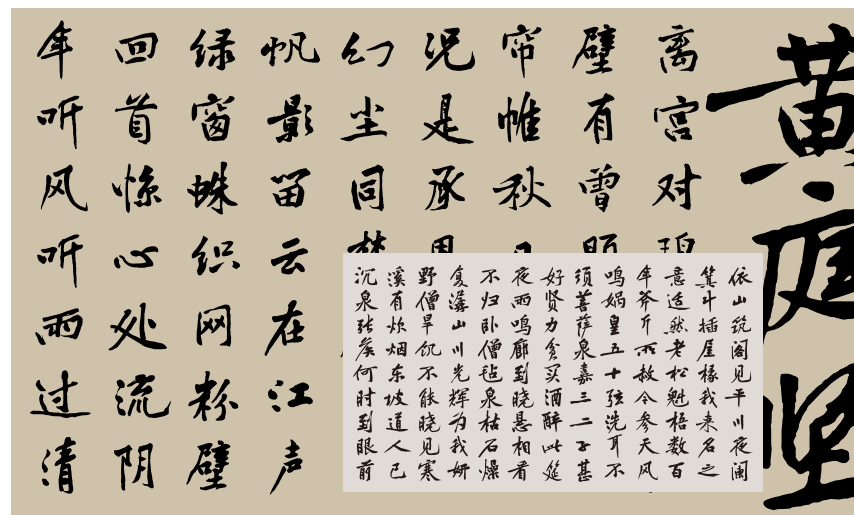 黄庭坚
离宫对
壁有曾
帘帷秋
况是承
幻尘同
帆影留云在江声
绿窗蛛织网粉壁
回首惊心处流阴
年听风听雨过清
依山筑阁见平川夜阑
箕斗插屋椽我来名之
意适然老松魁梧数百
年斧斤所赦令参天风
鸣娲皇五十弦洗耳不
须菩萨泉嘉三二子甚
好贤力贫买酒醉此筵
夜雨鸣廊到晓悬相看
不归卧僧毡泉枯石燥
复潺山川光辉为我妍
野僧旱饥不能晓见寒
溪有炊烟东坡道人已
沉泉张侯何时到眼前